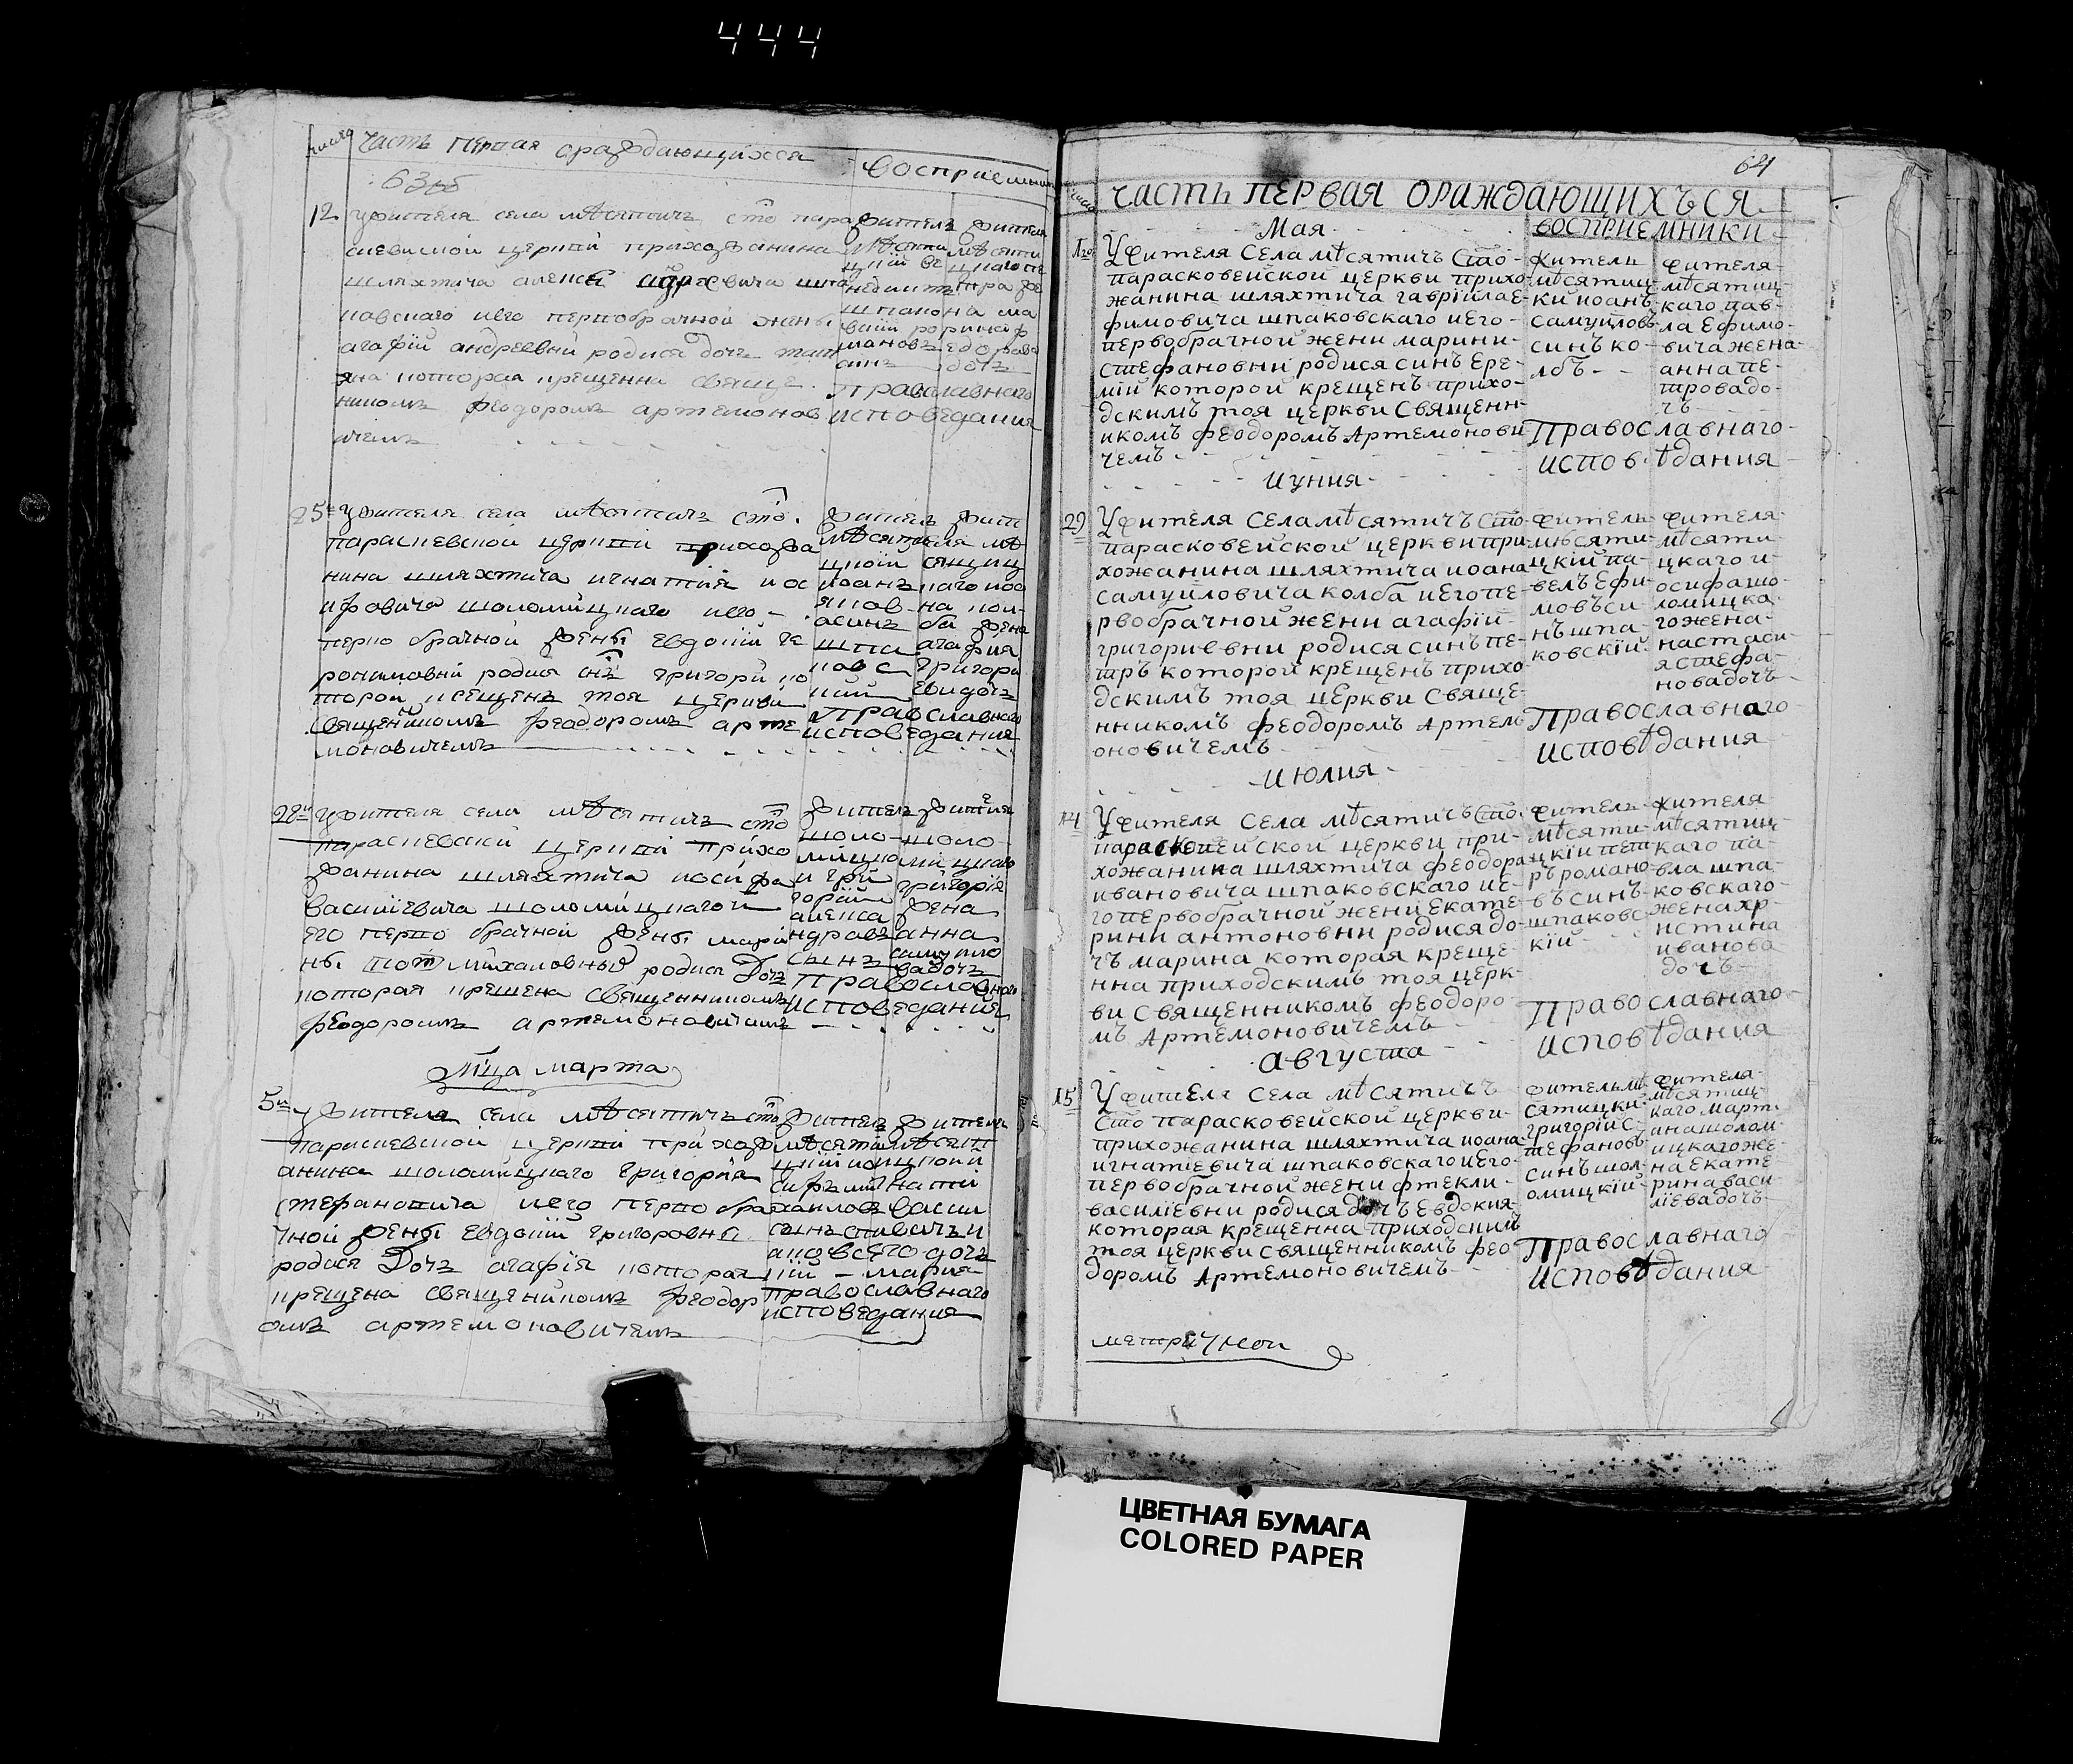 444
число
часть первая ораждающихся
восприемники
63об
12
У жителя села мѣсятичъ сто пара
скевиской церкви прихожанина
шляхтича алексѣ
ковскаго и его первобрачной жены
агафій андреевни родися дочъ тат
яна которая крещенна свяще
никомъ феодоромъ артемонов
ичемъ
житель
мѣсяти
цкій ве
недиктъ
шпако
вскій ро
мановъ
синъ
жителя
мѣсяти
цкаго пе
тра же
на ма
рина ф
едорова
дочъ
православнаго
исповедания
25
У жителя села мѣсятичъ сто
параскевской церкви прихожа
нина шляхтича игнатія иос
ифовича шоломицкаго и его
перво брачной жены евдокій ге
ронимовни родися снъ григори ко
торои крещенъ тоя церкви
священникомъ феодоромъ арте
моновичемъ
жител
мѣсяти
цкой
иоанъ
яков
а синъ
шпа
ковс
кий
жит
еля мѣ
сяциц
каго иоа
на кол
би жена
агафия
григори
ева дочъ
православнаго
исповедания
28
У жителя села мѣсятичъ сто
параскевской церкви прихо
жанина шляхтича иосифа
василиевича шоломицкаго и
его перво брачной жены марий
ны михаловны родися дочъ
которая крещена священникомъ
феодоромъ артемоновичемъ
житель
шоло
мицко
и гри
горій
алекса
ндровъ
сынъ
жителя
шоло
мицкаго
григорія
жена
анна
самуило
ва дочъ
православнаго
исповедания
Мца марта
5
У жителя села мѣсятичъ сто
параскевской церкви прихож
анина шоломицкаго григория
стефановича и его перво бра
чной жены евдокий григоровны
родися дочъ агафія которая
крещена священикомъ феодор
омъ артемоновичемъ
православнаго
исповедания
64
число
часть первая ораждающихъся
Мая
восприемники
У жителя Села мѣсятичъ Сто
парасковейской церкви прихо
жанина шляхтича гавріила е
фимовича шпаковскаго и его
первобрачной жени марини
стефановни родися синъ Ере
мій которой крещенъ прихо
дскимъ тоя церкви Священн
икомъ феодоромъ Артемонови
чемъ
житель
мѣсятиц
кій иоанъ
самуиловъ
синъ ко
лбъ
жителя
мѣсятиц
каго пав
ла Ефимо
вича жена
анна пе
трова до
чъ
Православнаго
исповѣдания
Иуния
29
У жителя Села мѣсятичъ Сто
парасковейской церкви при
хожанина шляхтича иоана
самуиловича колба и его пе
рвобрачной жени агафій
григориевни родися синъ пе
тръ которой крещенъ прихо
дскимъ тоя церкви Свяще
нникомъ феодоромъ Артем
оновичемъ
житель
мѣсяти
цкій па
велъ Ефи
мовъ си
нъ шпа
ковскій
жителя
мѣсяти
цкаго и
осифа шо
ломицка
го жена
настаси
я стефа
нова дочъ
Православнаго
исповѣдания
Июлия
14
У жителя Села мѣсятичъ Сто
парасковейской церкви при
хожанина шляхтича феодора
ивановича шпаковскаго и е
го первобрачной жени екате
рини антоновни родися до
чъ марина которая креще
нна приходскимъ тоя церк
ви Священникомъ феодоро
мъ Артемоновичемъ
житель
мѣсяти
цкій пет
ръ романо
въ синъ
шпаковс
кій
жителя
мѣсятиц
каго па
вла шпа
ковскаго
жена хр
истина
иванова
дочъ
Православнаго
исповѣдания
Августа
15
У жителя Села мѣсятичъ
Сто парасковейской церкви
прихожанина шляхтича иоана
игнатіевича шпаковскаго и его
первобрачной жени фтекли
василіевни родися дочъ Евдокия
которая крещенна приходским
тоя церкви священникомъ фео
доромъ Артемоновичемъ
житель мѣ
сятицки
григорій с
тефановъ
синъ шол
омицкій
жителя
мѣсятиц
каго март
ина шолом
ицкаго же
на Екате
рина васи
ліева дочъ
Православнаго
исповѣдания
ЦВЕТНАЯ БУМАГА
COLORED PAPER